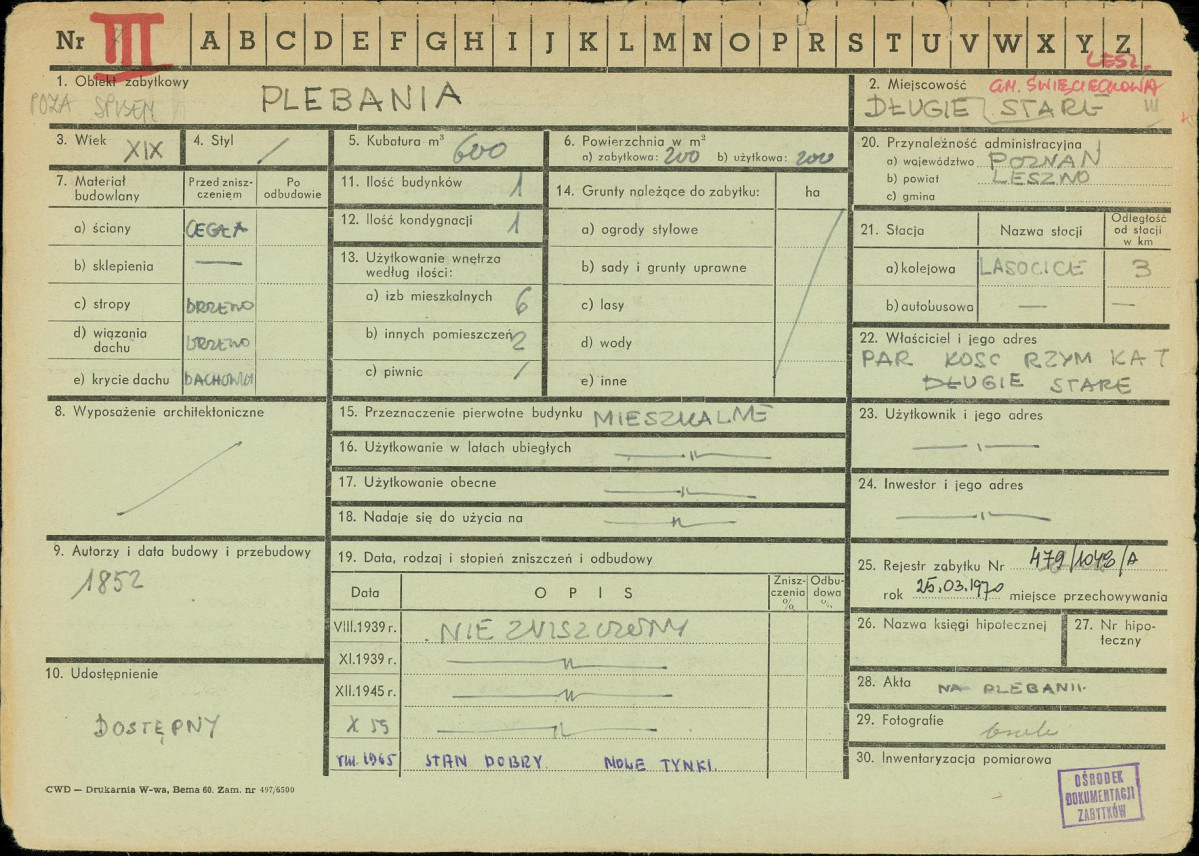 Nr III A B C D E F G H I J K L M N O P R S T U V W X Y Z
LESZ.
1. Obiekt zabytkowy
POZA SPISEM
PLEBANIA
2. Miejscowość GM. ŚWIĘCIECHOWA
DŁUGIE STARE III
3. Wiek XIX
4. Styl /
5. Kubatura m³ 600
6. Powierzchnia w m²
a) zabytkowa: 200 b) użytkowa: 200
20. Przynależność administracyjna
a) województwo POZNAŃ
b) powiat LESZNO
c) gmina
7. Materiał budowlany
Przed zniszczeniem
Po odbudowie
a) ściany CEGŁA
b) sklepienia —
c) stropy DRZEWO
d) wiązania dachu DRZEWO
e) krycie dachu DACHÓWKA
11. Ilość budynków 1
12. Ilość kondygnacji 1
13. Użytkowanie wnętrza
według ilości:
a) izb mieszkalnych 6
b) innych pomieszczeń 2
c) piwnic /
14. Grunty należące do zabytku: ha
a) ogrody stylowe
b) sady i grunty uprawne
c) lasy
d) wody
e) inne
21. Stacja Nazwa stacji
Odległość
od stacji
w km
a) kolejowa LASOCICE 3
b) autobusowa — —
22. Właściciel i jego adres
PAR KOSC RZYM KAT
DŁUGIE STARE
8. Wyposażenie architektoniczne
15. Przeznaczenie pierwotne budynku MIESZKALNE
16. Użytkowanie w latach ubiegłych — " —
17. Użytkowanie obecne — " —
18. Nadaje się do użycia na — " —
23. Użytkownik i jego adres
— " —
24. Inwestor i jego adres
— " —
9. Autorzy i data budowy i przebudowy
1852
19. Data, rodzaj i stopień zniszczeń i odbudowy
Data OPIS
Znisz-
czenia
%
Odbu-
dowa
%
VIII.1939 r. NIE ZNISZCZONY
XI.1939 r. — " —
XII.1945 r. — " —
X 59 — " —
VIII.1965 STAN DOBRY. NOWE TYNKI.
25. Rejestr zabytku Nr 479/1043/A
rok 25.03.1970 miejsce przechowywania
26. Nazwa księgi hipotecznej
27. Nr hipo-
teczny
10. Udostępnienie
DOSTĘPNY
28. Akta NA PLEBANII.
29. Fotografie
30. Inwentaryzacja pomiarowa
CWD — Drukarnia W-wa, Bema 60. Zam. nr 497/6500
OŚRODEK
DOKUMENTACJI
ZABYTKÓW